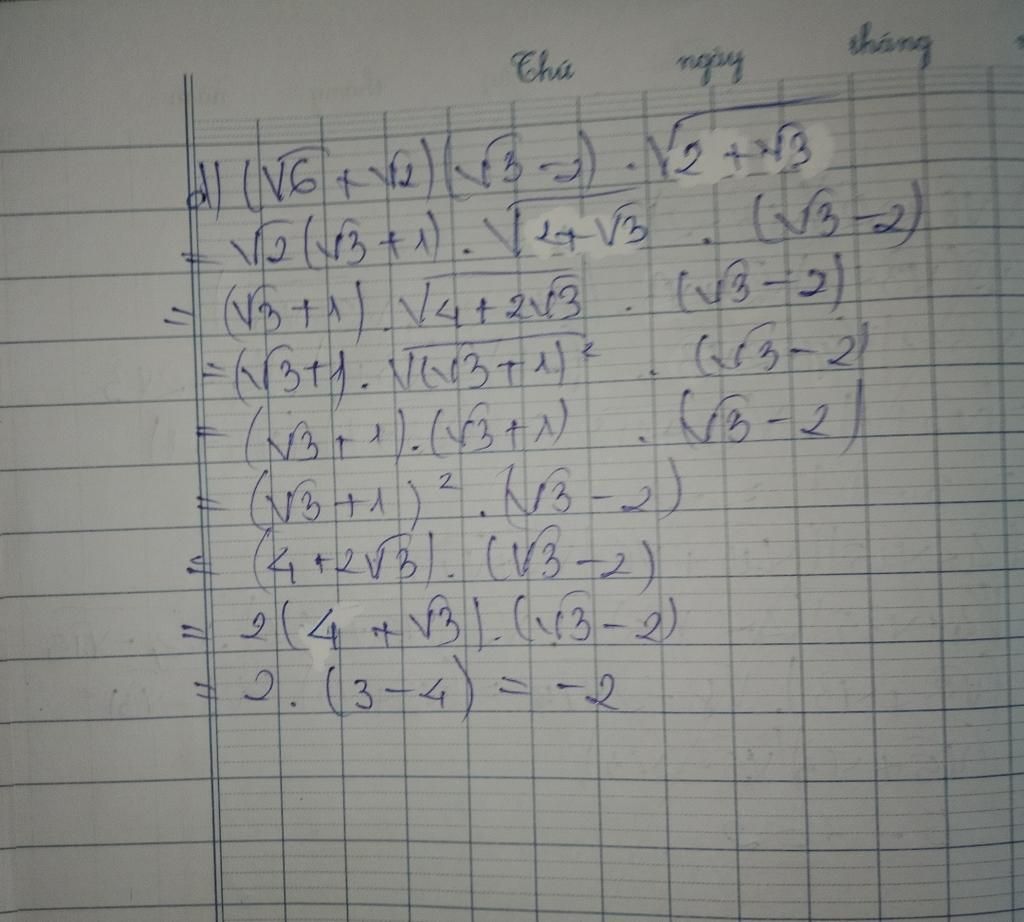 Thứ ngày tháng
d) (√6 + √2)(√3 - 2) . √(2 + √3)
= √2(√3 + 1) . √(2 + √3) . (√3 - 2)
= (√3 + 1) . √(4 + 2√3) . (√3 - 2)
= (√3 + 1) . √(√3 + 1)² . (√3 - 2)
= (√3 + 1) . (√3 + 1) . (√3 - 2)
= (√3 + 1)² . (√3 - 2)
= (4 + 2√3) . (√3 - 2)
= 2(4 + √3) . (√3 - 2)
= 2 . (3 - 4) = -2